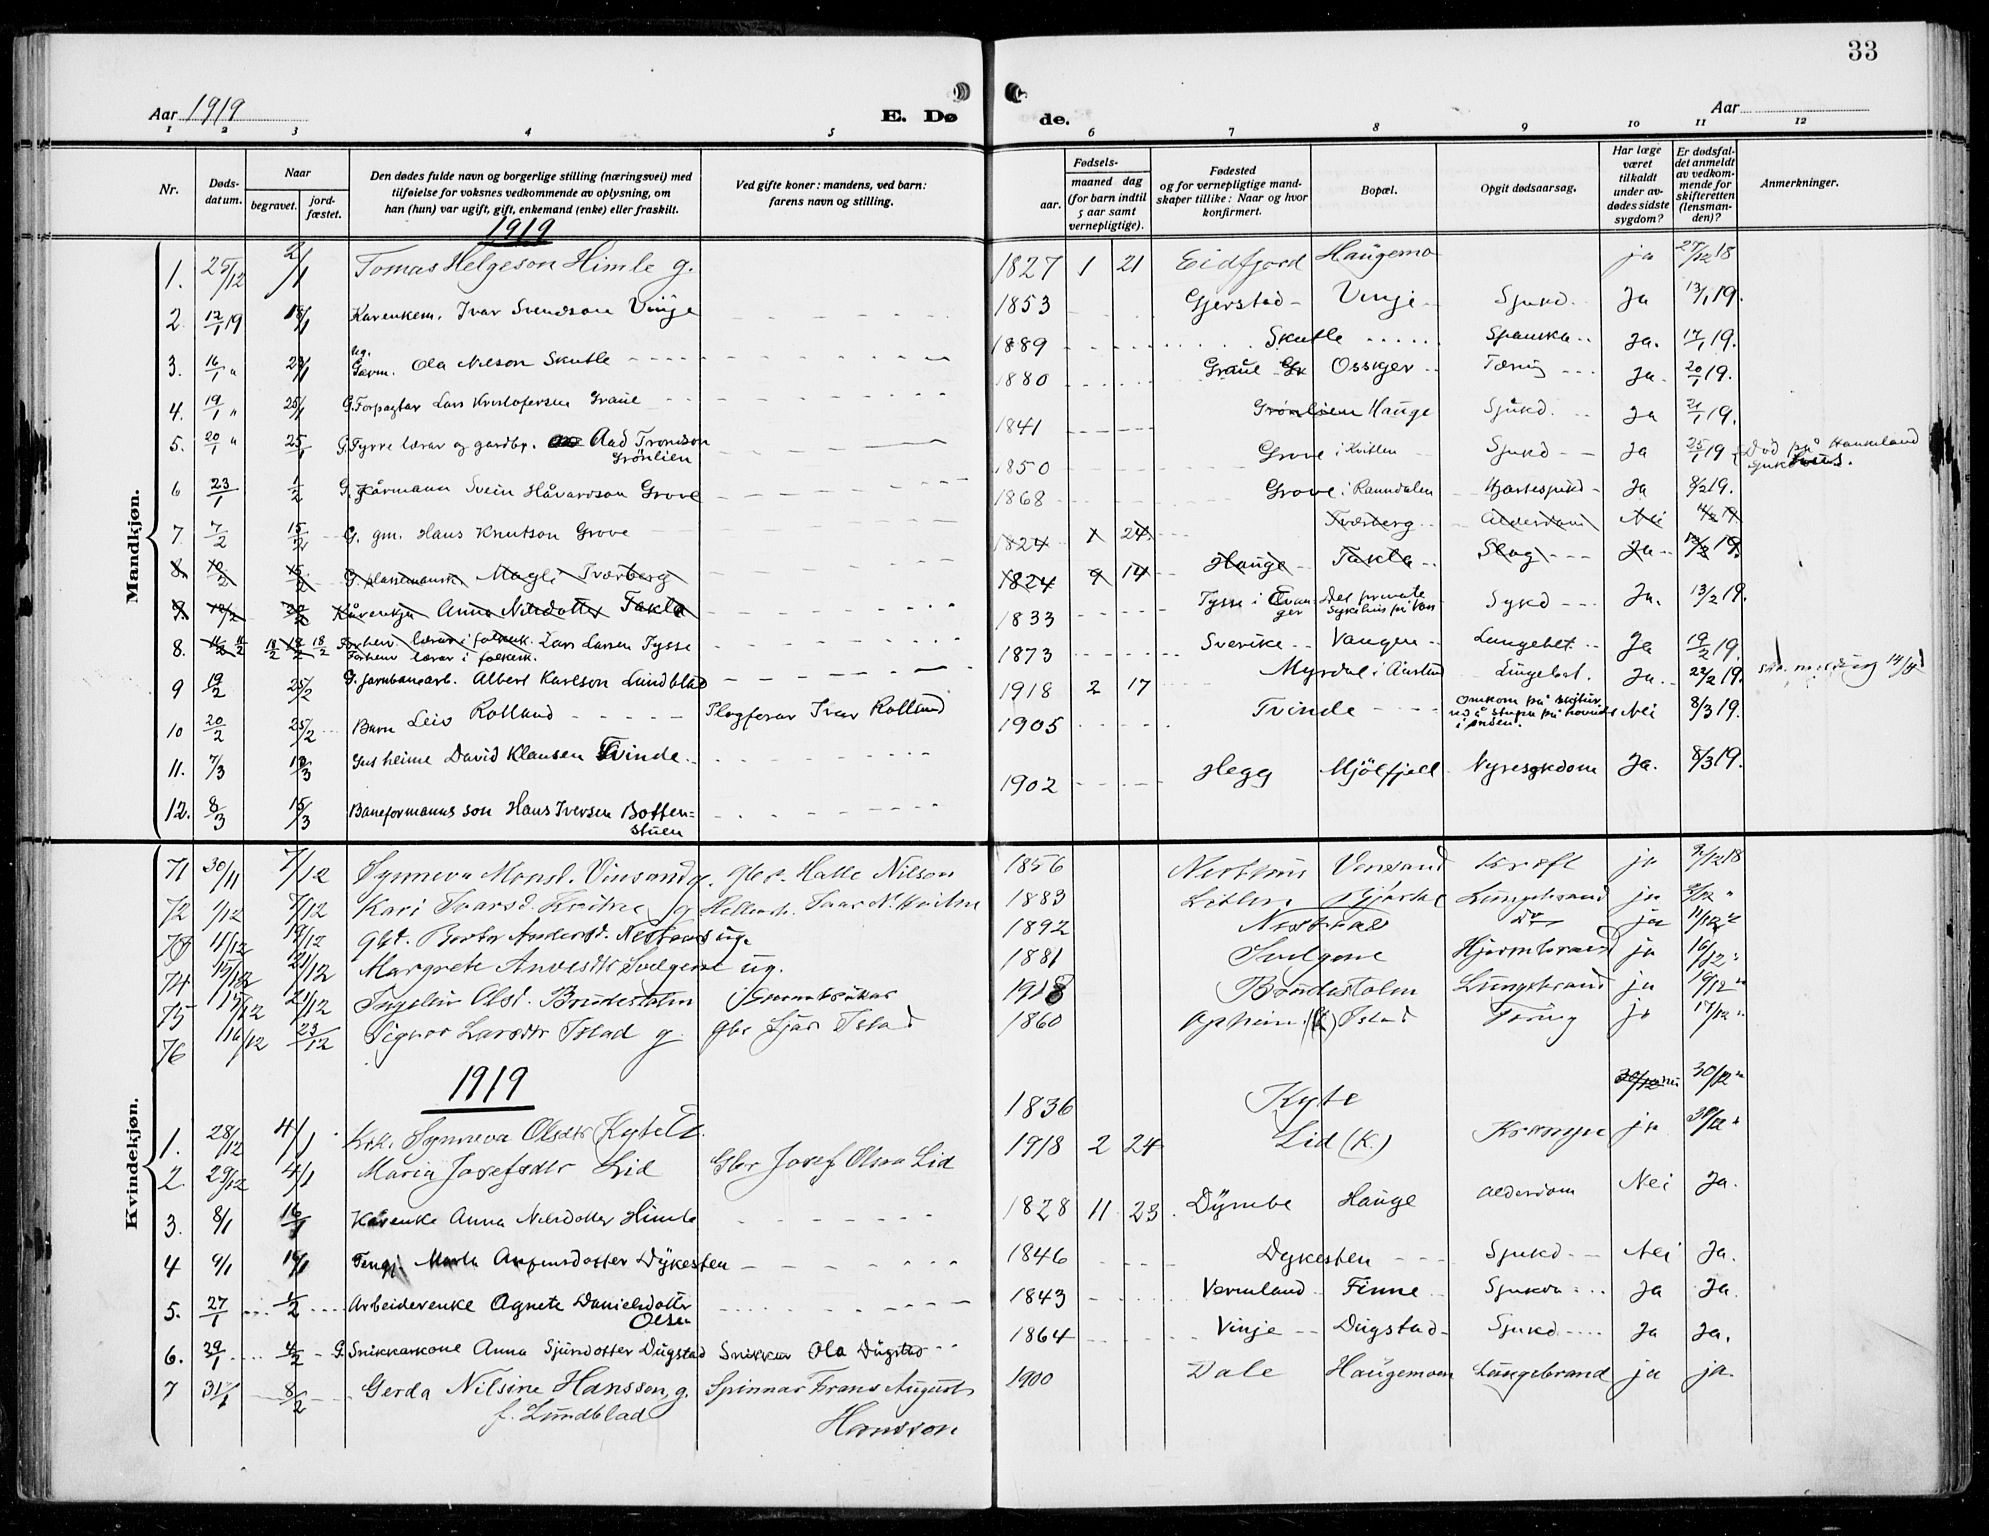 33
Aar 1919
E. Dø de.
Aar
1 2 3 4 5 6 7 8 9 10 11 12
Nr.
Døds-datum.
Naar
begravet.
jord-fæstet.
Den dødes fulde navn og borgerlige stilling (næringsvei) med
tilføielse for voksnes vedkommende av oplysning, om
han (hun) var ugift, gift, enkemand (enke) eller fraskilt.
Ved gifte koner: mandens, ved barn:
farens navn og stilling.
Fødsels-
aar.
maaned dag
(for barn indtil
5 aar samt
vernepligtige).
Fødested
og for vernepligtige mand-
skaper tillike: Naar og hvor
konfirmert.
Bopæl.
Opgit dødsaarsag.
Har læge
været
tilkaldt
under av-
dødes sidste
sygdom?
Er dødsfal-
det anmeldt
av vedkom-
mende for
skifteretten
(lensman-
den)?
Anmerkninger.
Mandkjøn.
1919
1. 25/12 2/1 Tomas Helgeson Himle g. 1827 1 21 Eidfjord Haugemo ja 27/12 18
2. 12/1 19 18/1 Kårenkem. Ivar Svendson Vinje 1853 Gjerstad Vinje Sjukd. Ja 13/1 19.
3. 16/1 " 23/1 ug. Garm. Ola Nilson Skutle 1889 Skutle Spanska Ja. 17/1 19.
4. 19/1 " 25/1 G. Forpagtar Lars Kristofersen Graue 1880 Graue Gr Osskjer Tæring Ja 20/1 19.
5. 20/1 " 25/1 G. Fyrre lærar og gardbr. Aad Tronson Grönlien 1841 Grönlien Hauge Sjukd. Ja 21/1 19.
6 23/1 1/2 G. Kårmann Svein Håvardson Grove 1850 Grove i Kvitlen Sjukd Ja 25/1 19 Död på Haukeland sjukehus.
7 7/2 15/2 G. gm. Hans Knutson Grove 1868 Grove i Raundalen Hjartesjukd Ja 8/2 19.
8. 10/2 15/2 G. plassemansk. Magli Tværberg 1824 1 24 Tværberg Alderdom Nei 11/2 19
9. 12/2 20/2 Kårenkja Anna Nilsdotter Takla 1824 9 14 Hauge Takla Slag Ja 13/2 19.
8. 11/2 18/2 Forhenv. lærar i folkesk. Lars Larsen Tysse 1833 Tysse i Evanger Det private sykehus på Voss Sykd Ja. 13/2 19.
Forhenv lærar i folkesk.
9 19/2 25/2 G. jarnbanearb. Albert Karlson Lundblad 1873 Sverike Vangen Lungebet. Ja 19/2 19.
10 20/2 25/2 Barn Leiv Rolland Plogførar Ivar Rolland 1918 2 17 Myrdal i Aurland Lungebet. Ja. 22/2 19.
11. 7/3 13/3 Gut heime David Klausen Tvinde 1905 Tvinde Omkom på skitur Nei 8/3 19.
12. 8/3 15/3 Baneformanns son Hans Iversen Botten=stuen 1902 Hegg Mjölfjell Nyresykdom Ja. 8/3 19.
Kvindekjøn.
71 30/11 7/12 Synneva Monsd. Vinsand g. Gbr. Halle Nilson 1856 Vinsand Kræft ja 2/12 18
72 1/12 7/12 Kari Ivarsd. Kvitne g Ivar N. Kvitne 1883 Lungebrand ja "
73 11/12 19/12 Gbd. Andersd. Nestaas ug. 1892 Nestaas do ja 11/12 "
74 15/12 21/12 Margrete ug. 1881 Hjernebrand ja 16/12 "
75 15/12 21/12 Ingebjør Olsd. Brudestolen 1918 Brudestolen Lungebrand ja 19/12 "
76 16/12 23/12 Signor Larsdtr Istad g. Gbr Sjur Istad 1860 Opheim Istad Tæring ja 17/12 "
1919
1. 28/12 4/1 Synneva Olsdtr Kyte 1836 Kyte 30/12 "
2. 29/12 4/1 Maria Josefsdtr Lid Gbr Josef Olson Lid 1918 2 24 Lid (K.) Krampe ja 30/12 "
3. 8/1 16/1 Kårenke Anna Nilsdotter Himle 1828 11 23 Dymbe Hauge Alderdom Nei Ja.
4 9/1 19/1 Marta Arfinsdotter Dykesten 1846 Dykesten Sjukd Nei Ja.
5. 27/1 1/2 Arbeiderenke Agnete Danielsdotter Olsen 1843 Vermland Finne Sjukdn Ja Ja.
6. 29/1 4/2 G. Snikkarkone Anna Sjurdotter Dugstad Snikkar Ola Dugstad 1864 Vinje Dugstad Sjukd Ja Ja.
7 31/1 8/2 Gerda Nilsine Hansson, g. Spinnar Frans August Hansson 1900 Dale Haugemoen Lungebrand ja ja.
f. Lundblad